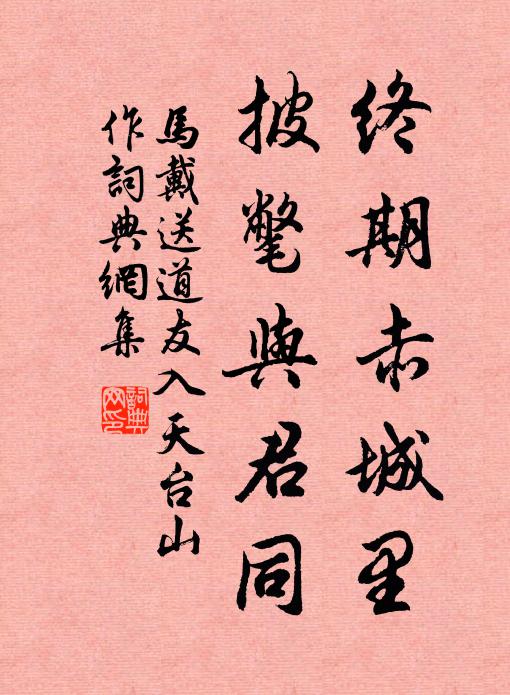 終期赤城里
披氅與君同
馬戴送道友入天台山
作詞典網集
詞典
网印